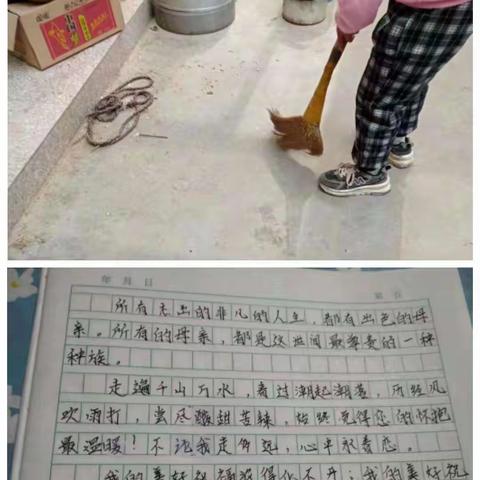 年 月 日 第 页
所有杰出的非凡的人生，都有出色的母
亲。所有的母亲，都是这世间最挚爱的一种
种族。
走遍千山万水，看过潮起潮落，历经风
吹雨打，尝尽酸甜苦辣，始终觉得您的怀抱
最温暖！不论我走多远，心中永眷恋。
我的美好祝福浓得化不开；我的美好祝